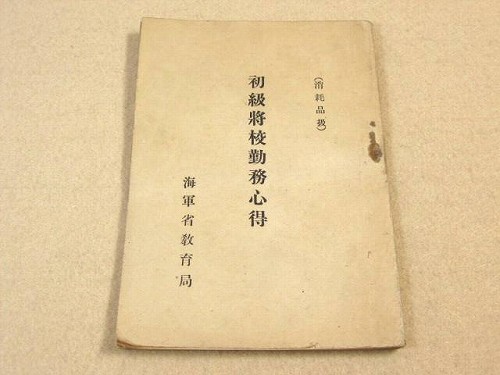 (消耗品扱)
初級將校勤務心得
海軍省教育局